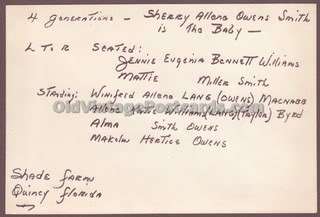 4 Generations - Sherry Allana Owens Smith
is The Baby -
L To R Seated:
Jennie Eugenia Bennett Williams
Mattie Miller Smith
Standing: Winifred Allana Lang (Owens) Macnabb
Williams (Laird) (Taylor) Byrd
Alma Smith Owens
Malcolm Hertice Owens
Shade Farm
Quincy Florida
OldVintagePostcards.com